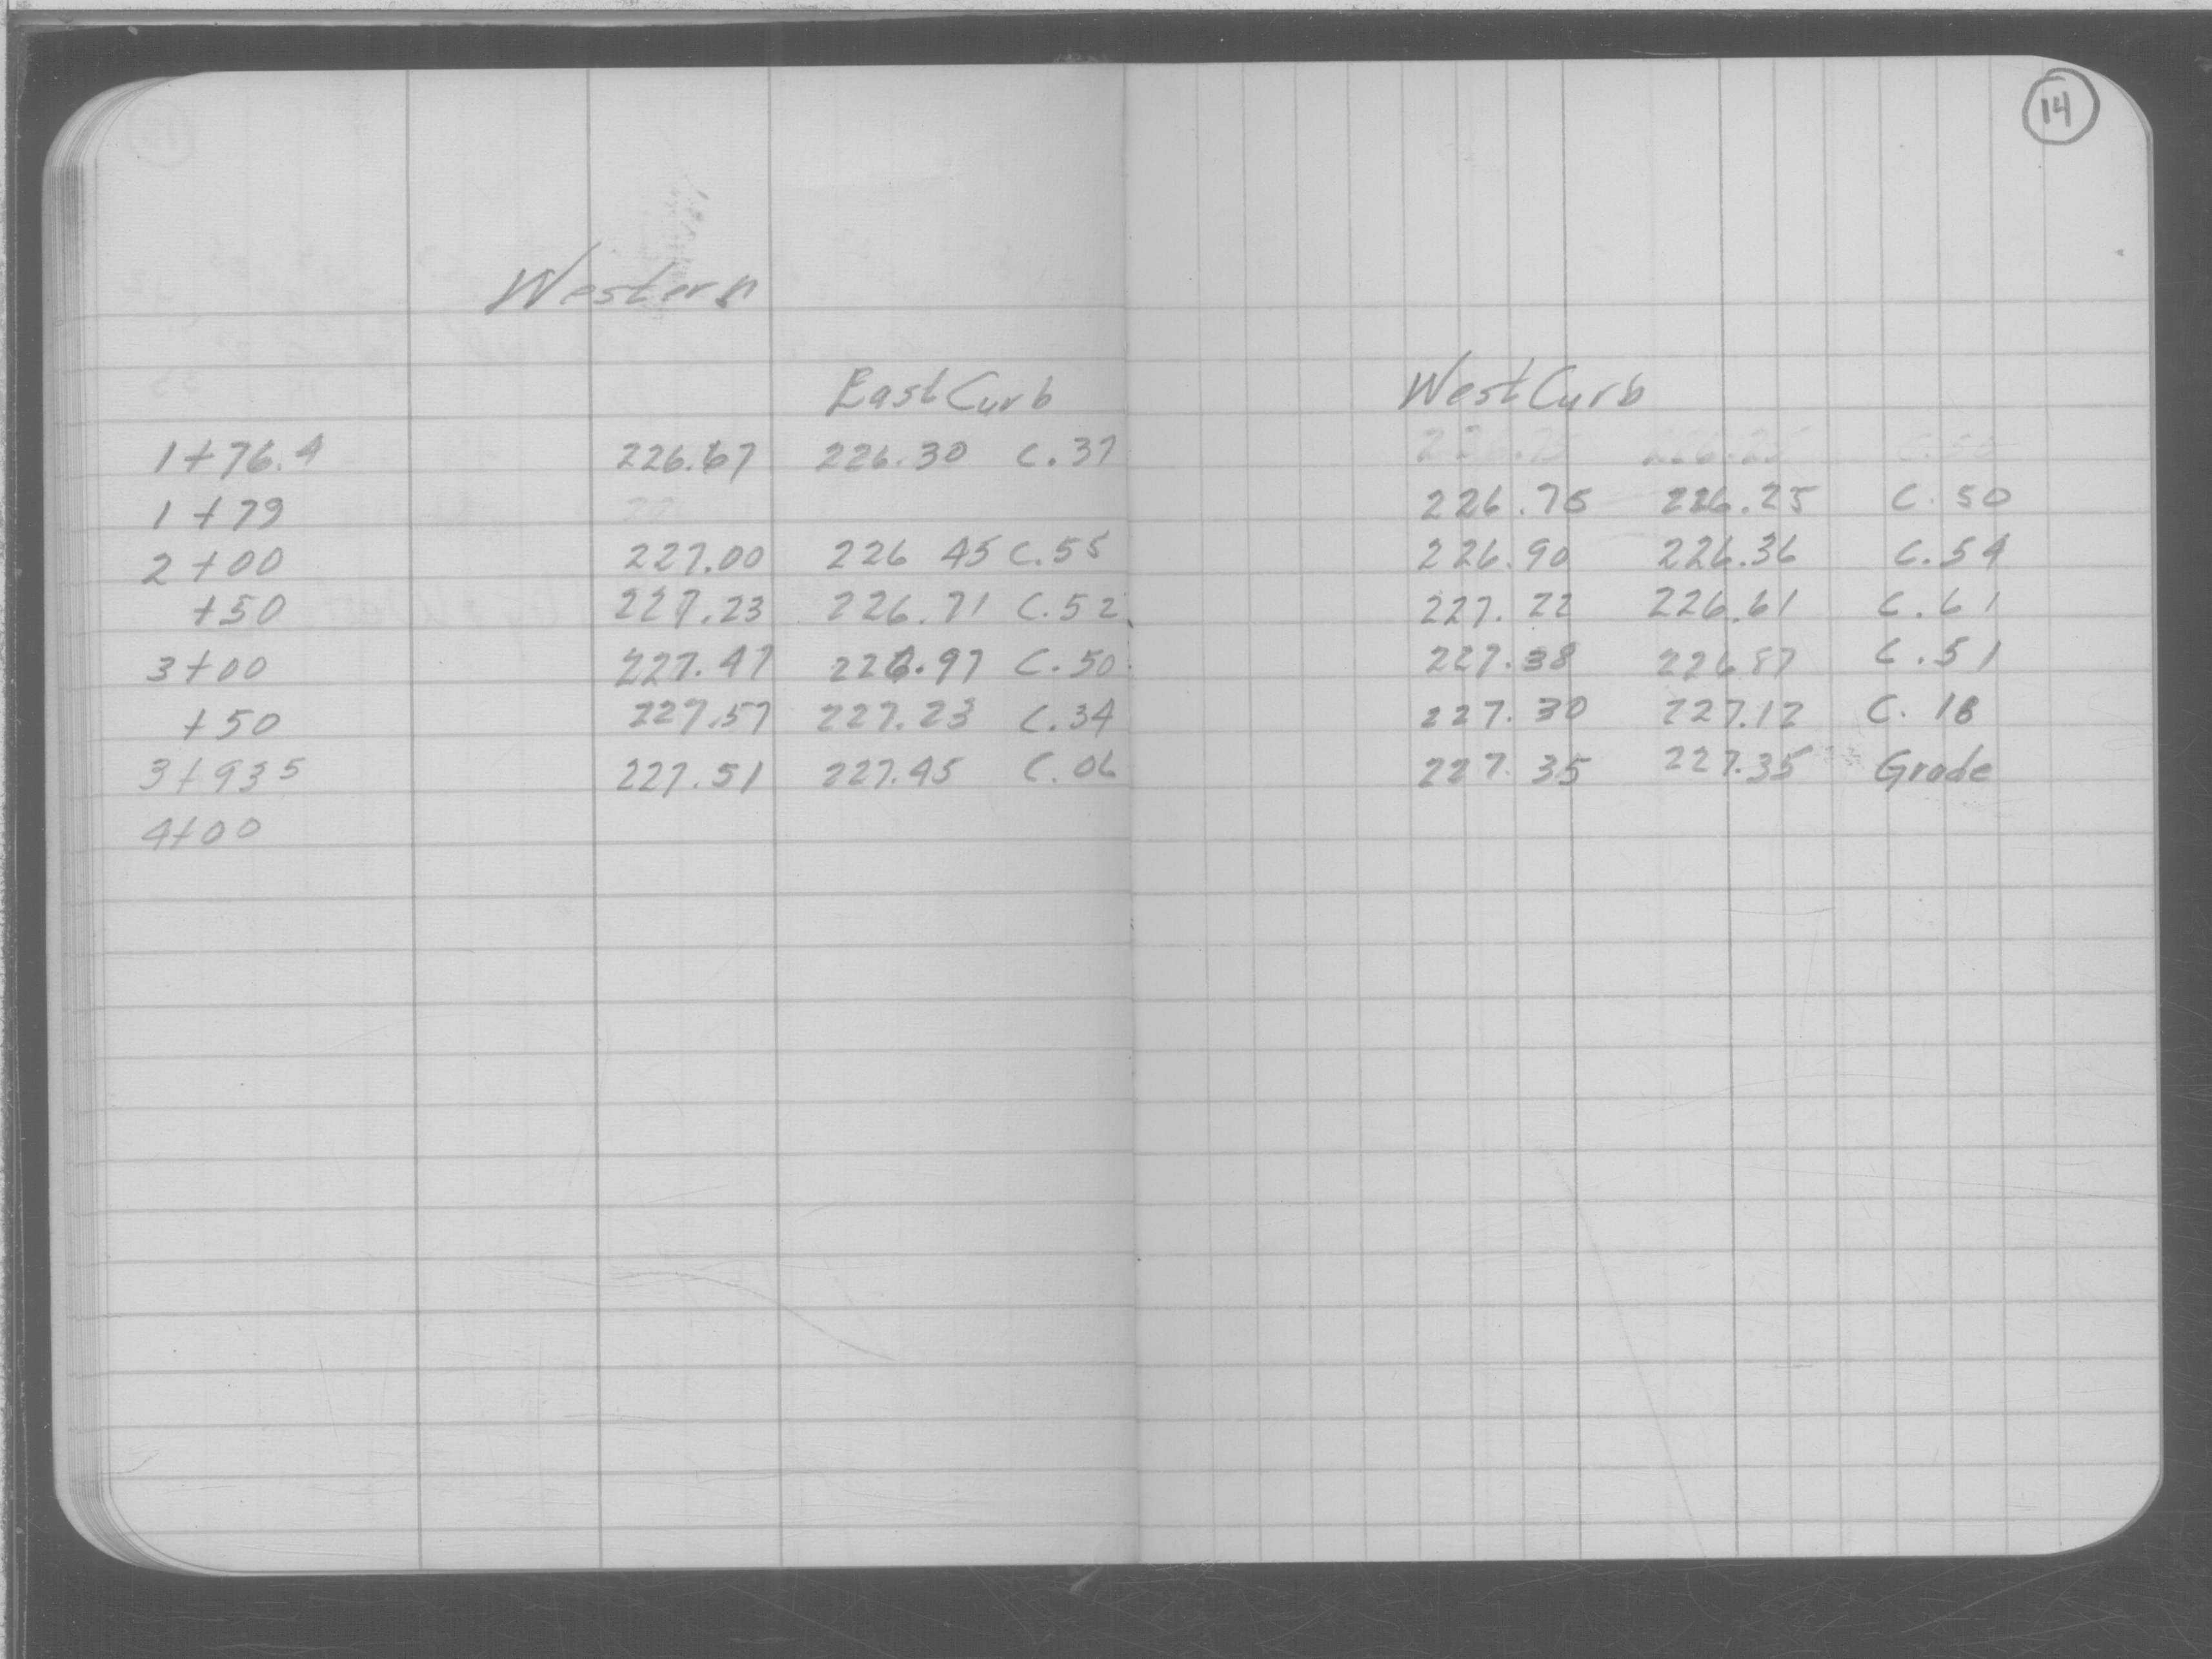 14
Western
East Curb West Curb
1+76.4 226.67 226.30 C.37
1+79 226.75 226.25 C.50
2+00 227.00 226 45 C.55 226.90 226.36 C.54
+50 227.23 226.71 C.52 227.22 226.61 C.61
3+00 227.47 226.97 C.50 227.38 226.87 C.51
+50 227.57 227.23 C.34 227.30 227.12 C.18
3+935 227.51 227.45 C.06 227.35 227.35 Grade
4+00